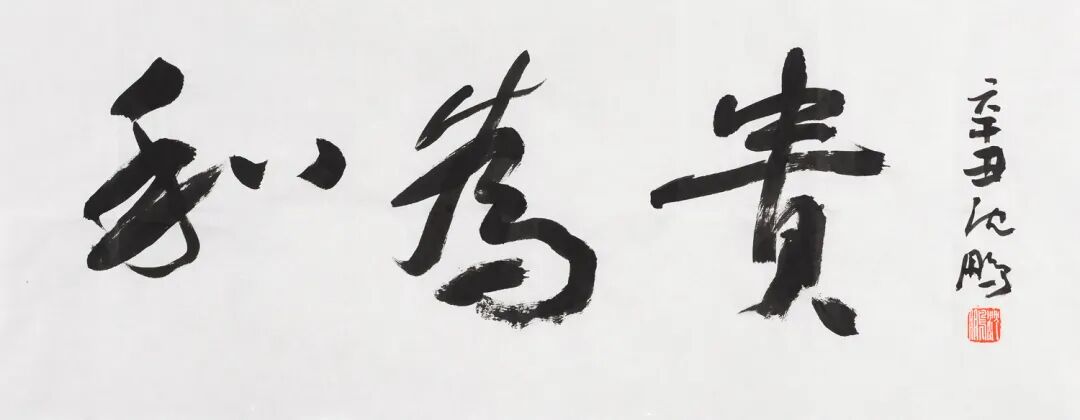 和為貴
辛丑沈鹏